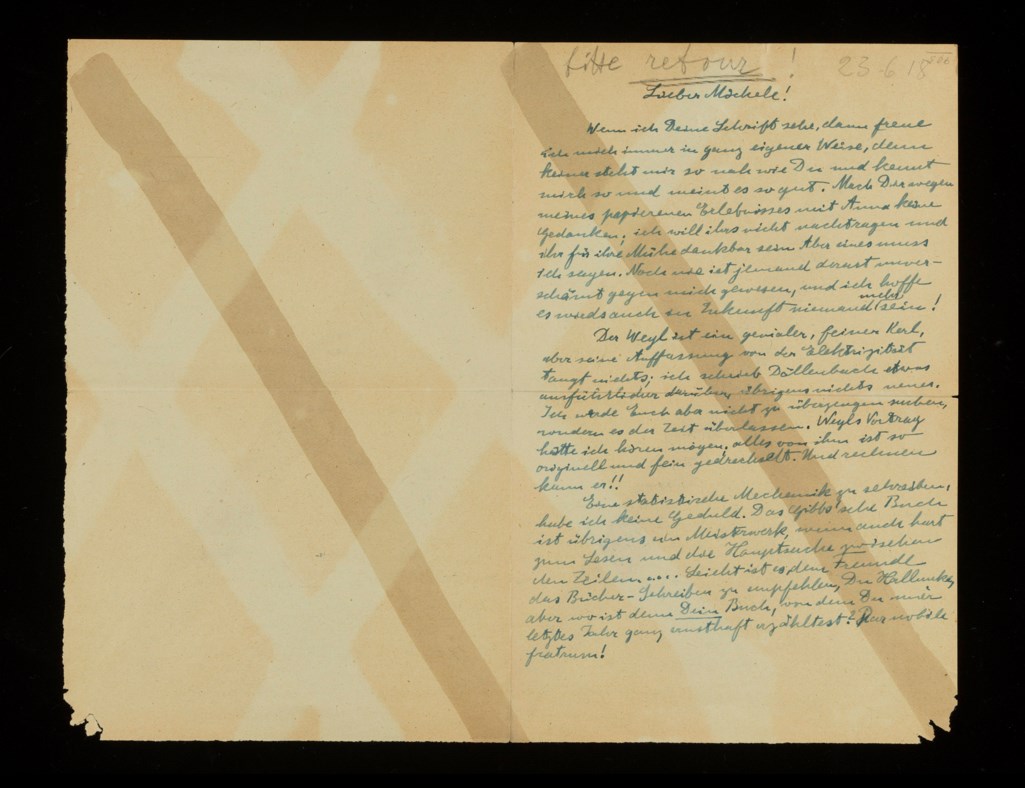 bitte retour!
23-6 18
Lieber Michele!
Wenn ich Deine Schrift sehe, dann freue
ich mich immer in ganz eigener Weise, denn
keiner steht mir so nah wie Du und kennt
mich so und meint es so gut. Mach Dir wegen
meines papierenen Erlebnisses mit Anna keine
Gedanken; ich will ihrs nicht nachtragen und
ihr für ihre Mühe dankbar sein. Aber eines muss
ich sagen. Noch nie ist jemand derart unver-
schämt gegen mich gewesen, und ich hoffe
es wirds auch in Zukunft niemand mehr sein!
Der Weyl ist ein genialer, feiner Kerl,
aber seine Auffassung von der Elektrizität
taugt nichts; ich schrieb Dällenbach etwas
ausführlicher darüber, übrigens nichts neues.
Ich werde Euch aber nicht zu überzeugen suchen,
sondern es der Zeit überlassen. Weyls Vortrag
hätte ich hören mögen, alles von ihm ist so
originell und fein gedrechselt. Und rechnen
kann er!!
Eine statistische Mechanik zu schreiben,
habe ich keine Geduld. Das Gibbs'sche Buch
ist übrigens ein Meisterwerk, wenn auch hart
zum Lesen und die Hauptsache zwischen
den Zeilen.... Leicht ist es, dem Freunde
das Bücher-Schreiben zu empfehlen, Du Hallunke,
aber wo ist denn Dein Buch, von dem Du mir
letztes Jahr ganz ernsthaft erzähltest? Par nobile
fratrum!